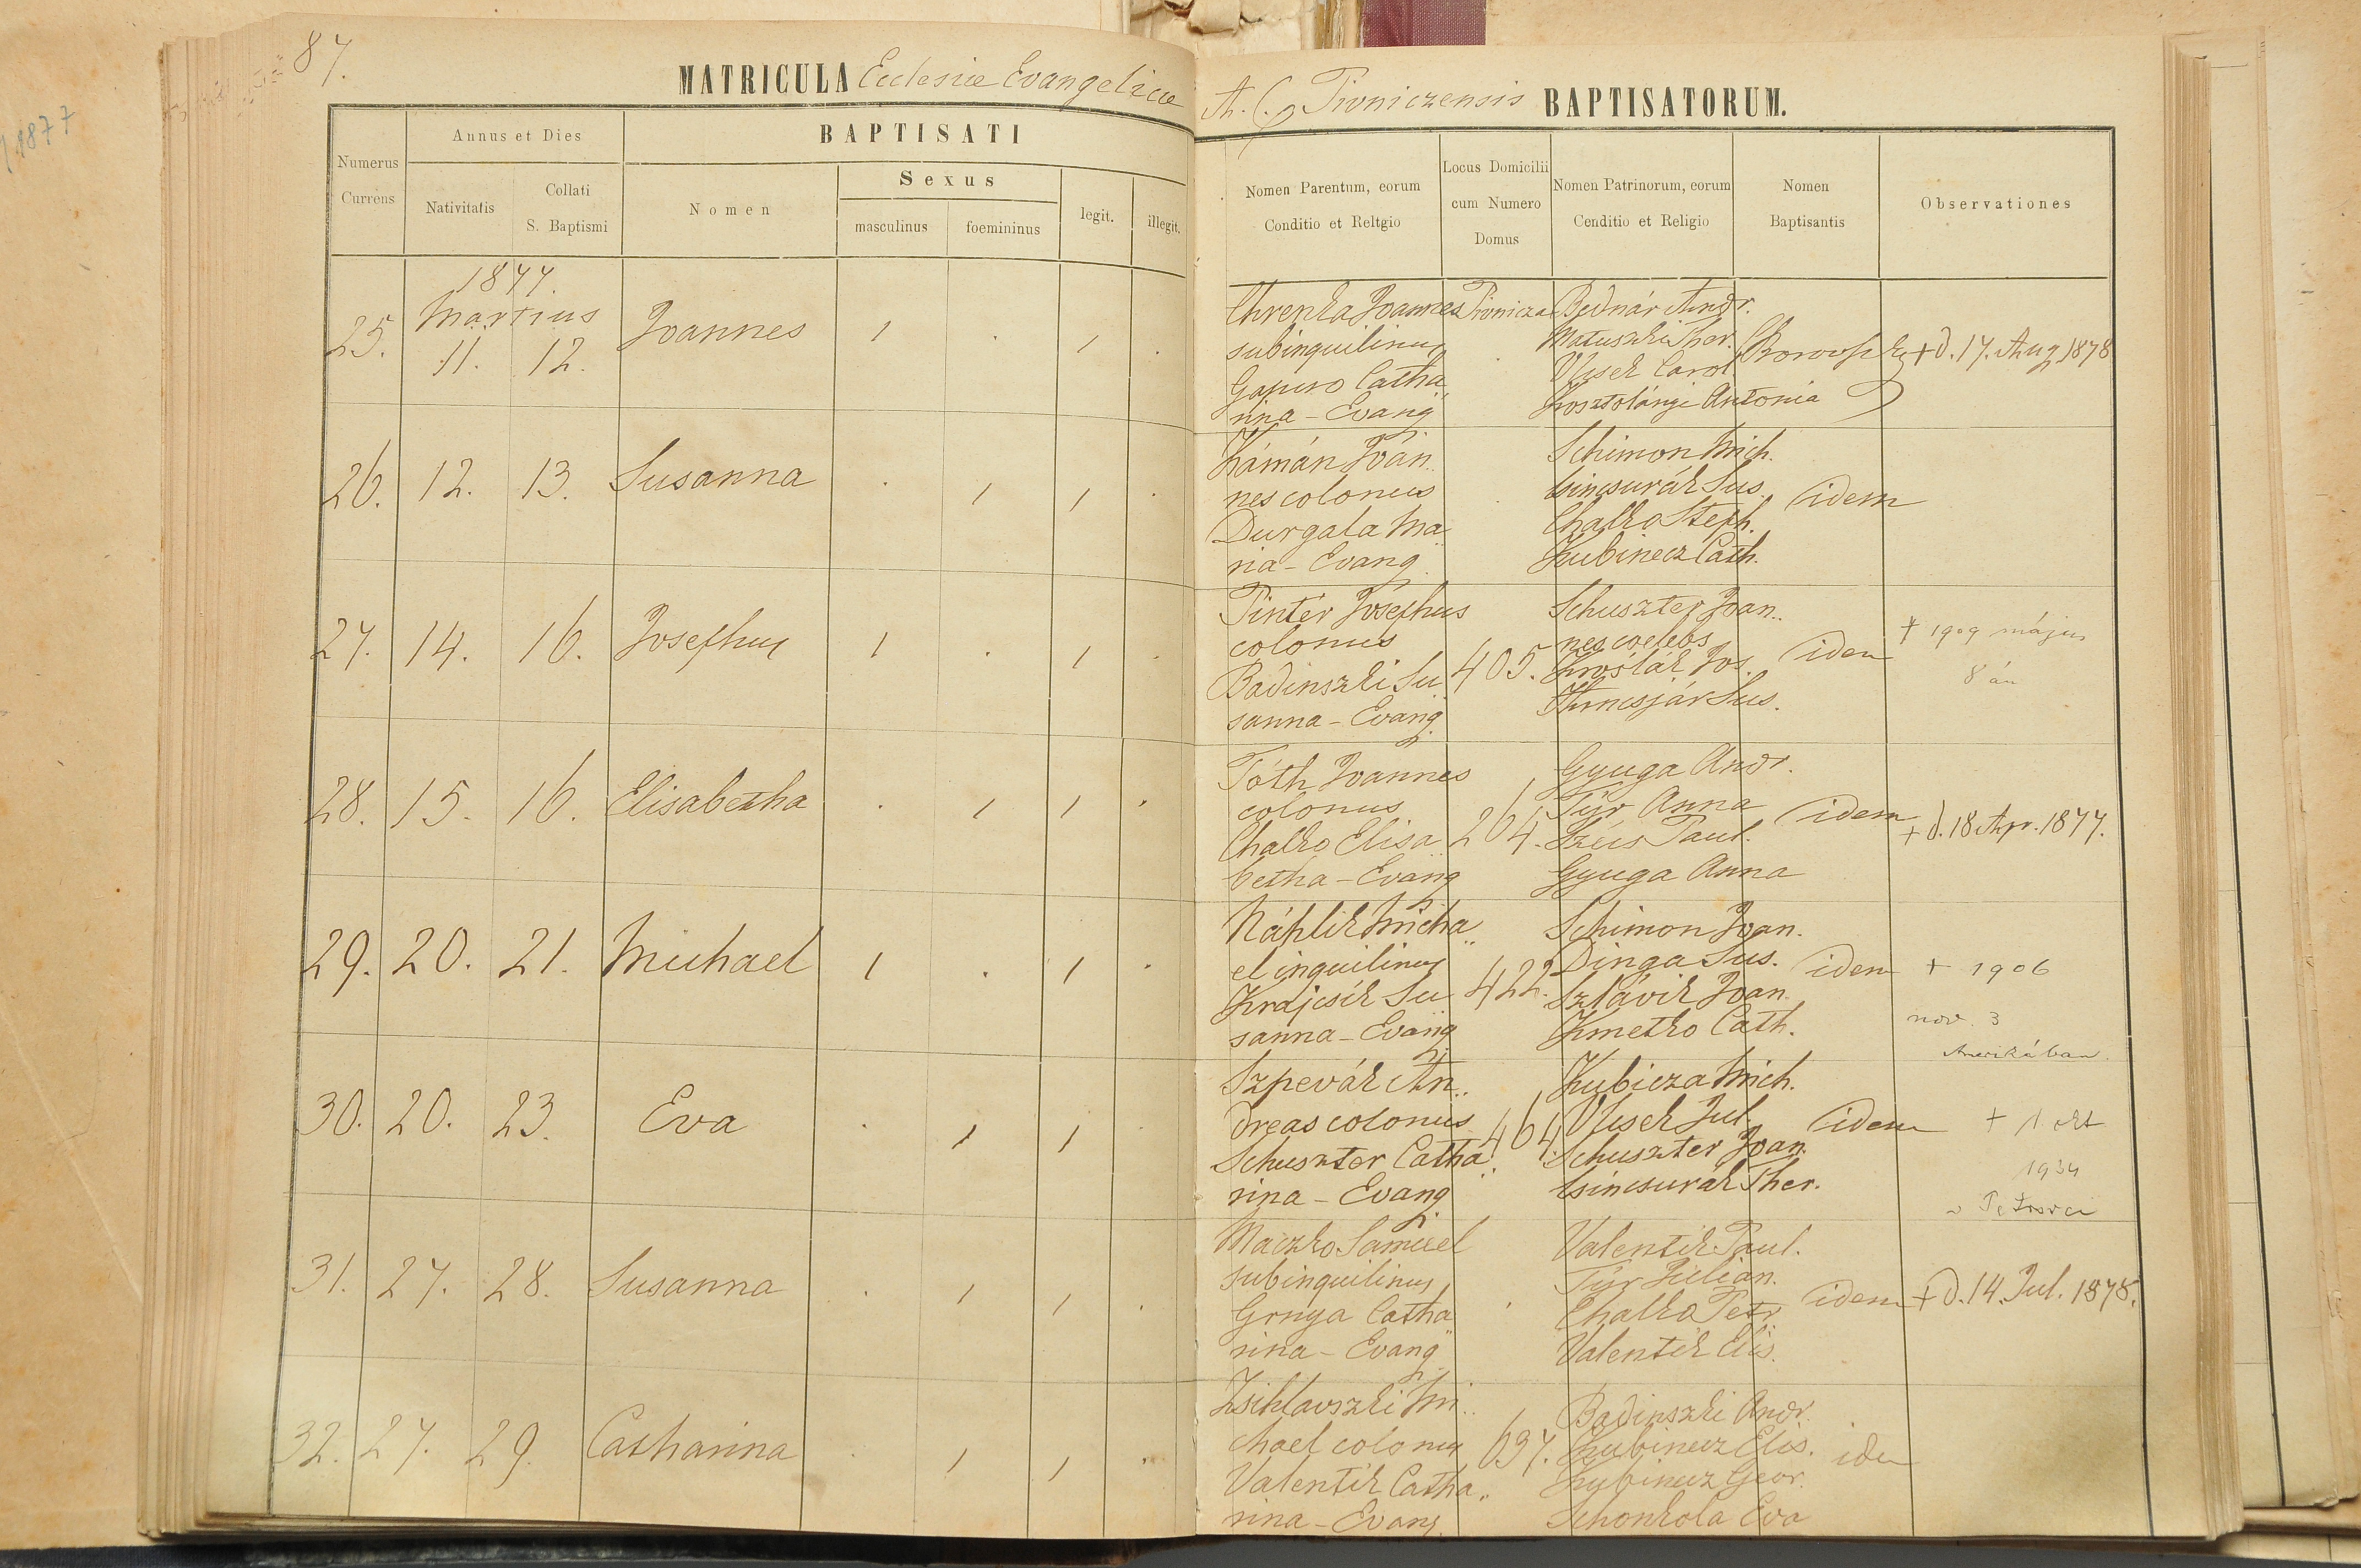 87.
1877
MATRICULA Ecclesiae Evangelicae A. C. Pivniczensis BAPTISATORUM.
Numerus Currens
Annus et Dies
Nativitatis
Collati S. Baptismi
BAPTISATI
Nomen
Sexus
masculinus
foemininus
legit.
illegit.
Nomen Parentum, eorum Conditio et Reltgio
Locus Domicilii cum Numero Domus
Nomen Patrinorum, eorum Cenditio et Religio
Nomen Baptisantis
Observationes
1877.
Martius
25. 11. 12. Joannes 1 . 1 .
Chrenka Joannes
subinquilinus
Catha
rina - Evang.
Pivnicza
Bednár Andr.
Matuszki Ther.
Vlsek Carol
Kosztolányi Antonia
Borovszky
+ d. 17. Aug 1878
26. 12. 13. Susanna . 1 1 .
Kámán Joan
nes colonus
Durgala Ma
ria - Evang.
Schimon Mich.
Csincsurák Sus.
Chalko Steph.
Kubinecz Cath.
idem
27. 14. 16. Josephus 1 . 1 .
Pintér Josephus
colonus
Badinszki Su
sanna - Evang.
405.
Schuszter Joan
nes coelebs
Jos.
Sus.
idem
+ 1909 május
8 án
28. 15. 16. Elisabetha . 1 1 .
Tóth Joannes
colonus
Chalko Elisa
betha - Evang
204.
Gyuga Andr.
Týr Anna
Paul.
Gyuga Anna
idem
+ d. 18 Apr. 1877.
29. 20. 21. Michael 1 . 1 .
Náhlik Micha
el inquilinus
Krajcsík Su
sanna - Evang
422.
Schimon Joan.
Dinga Sus.
Szlávik Joan.
Kmetko Cath.
idem
+ 1906
nov. 3
Amerikában.
30. 20. 23. Eva . 1 1 .
Szpevák An
dreas colonus
Schuszter Catha
rina - Evang.
464.
Kubicza Mich.
Vlsek Jul.
Schuszter Joan.
Csincsurák Ther.
idem
+ 1 okt
1934
v Petrovci
31. 27. 28. Susanna . 1 1 .
Maczko Samuel
subinquilinus
Grnya Catha
rina - Evang
Valentík Paul.
Týr Julian.
Chalko Petr.
Valentík Elis.
idem
+ d. 14. Jul. 1878.
32. 27. 29. Catharina . 1 1 .
Zsihlavszki Mi
chael colonus
Valentík Catha
rina - Evang
697.
Badinszki Andr.
Kubinecz Elis.
Kubinecz Geor.
Schonkola Eva
idem